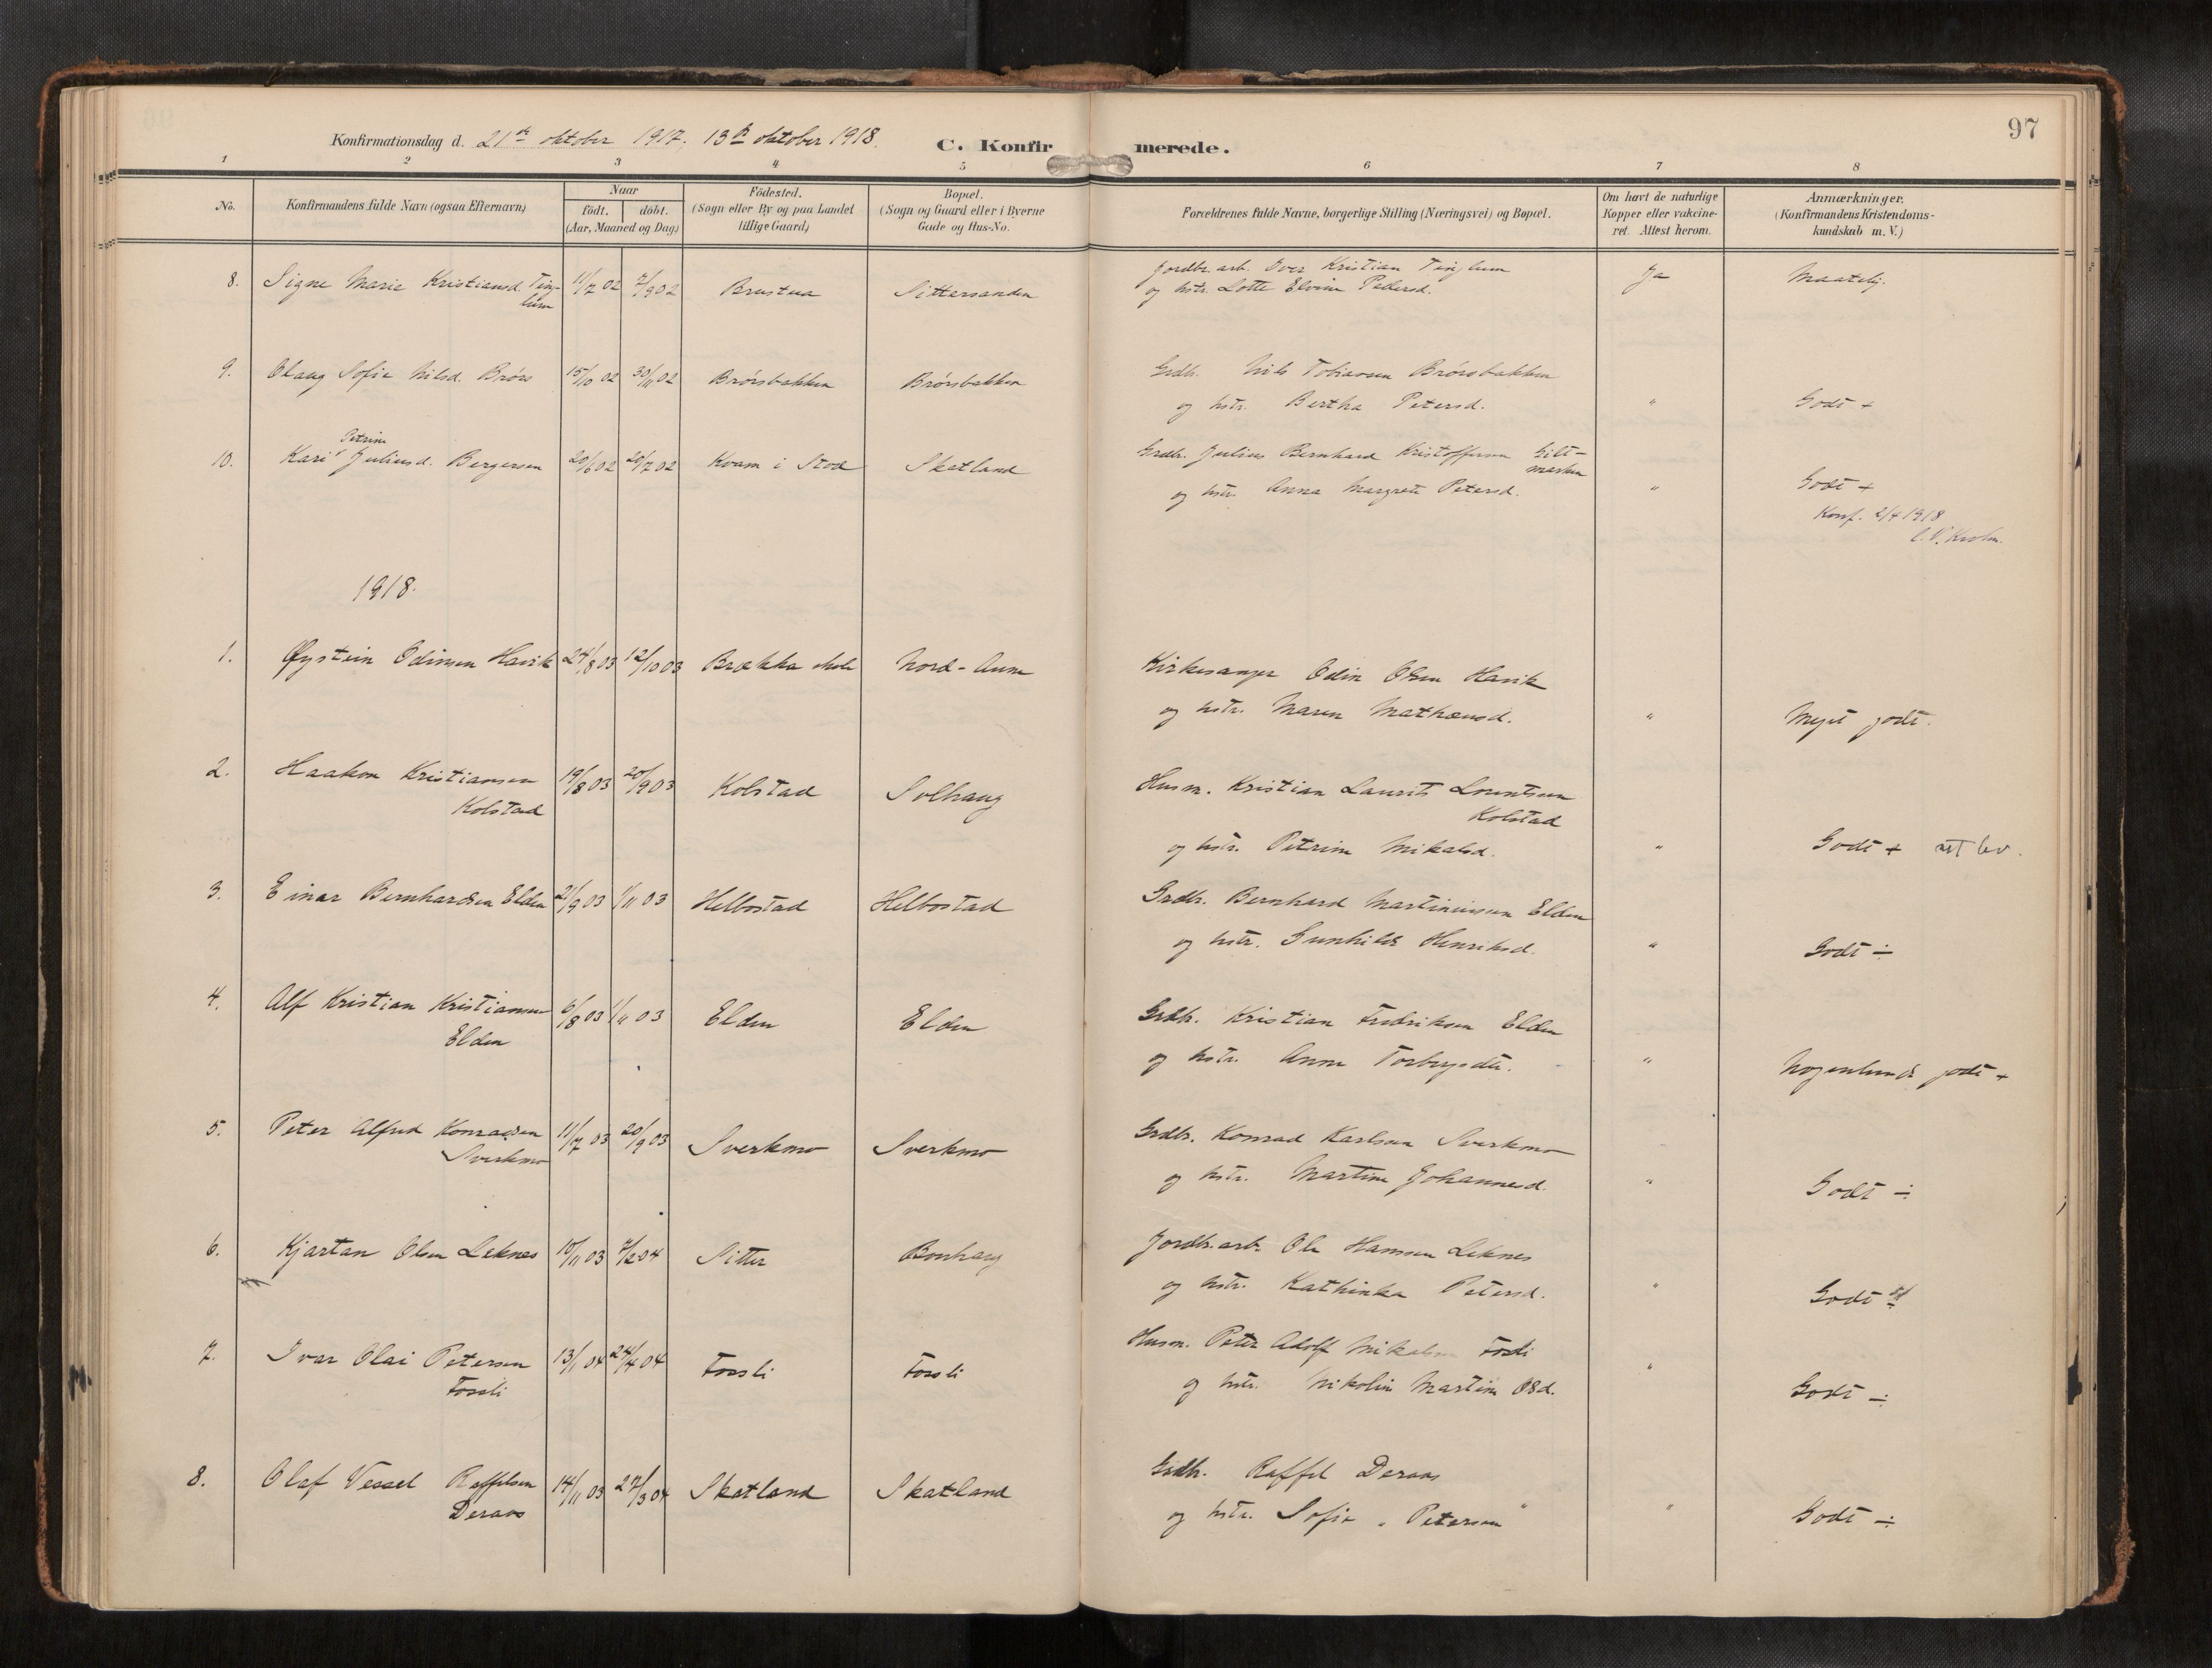 97
Konfirmationsdag d. 21de oktober 1917, 13de oktober 1918.
C. Konfirmerede.
1 2 3 4 5 6 7 8
No.
Konfirmandens fulde Navn (ogsaa Efternavn)
Naar
födt. döbt.
(Aar, Maaned og Dag)
Födested.
(Sogn eller By og paa Landet
tillige Gaard)
Bopæl.
(Sogn og Gaard eller i Byerne
Gade og Hus-No.
Forældrenes fulde Navne, borgerlige Stilling (Næringsvei) og Bopæl.
Om havt de naturlige
Kopper eller vakcine-
ret. Attest herom.
Anmærkninger.
(Konfirmandens Kristendoms-
kundskab m. V.)
8. Signe Marie Kristiansd. Ting-
lum
11/7 02 7/9 02 Brustua Sittersanden
Jordbr. arb. Iver Kristian Tinglum
og hstr. Lotte Elvine Pedersd.
Ja Maatelig.
9. Olaug Sofie Nilsd. Brørs 15/10 02 30/11 02 Brørsbakken Brørsbakken
Grdbr. Nils Tobiassen Brørsbakken
og hstr. Bertha Petersd. " Godt +
Petrine
10. Kari Juliusd. Bergersen 20/6 02 20/7 02 Kvam i Stod Skatland
Grdbr. Julius Bernhard Kristoffersen Gilt-
marken
og hstr. Anna Margrete Petersd. " Godt +
Konf. 2/4 1918
1918.
1. Øystein Odinsen Havik 24/8 03 12/10 03 Brækka skole Nord-Aune
Kirkesanger Odin Olsen Havik
og hstr. Maren Mathæusd. " Meget godt.
2. Haakon Kristiansen
Kolstad
19/8 03 20/9 03 Kolstad Solhaug
Husm. Kristian Laurits Lorentsen
Kolstad
og hstr. Petrine Mikalsd. " Godt +
3. Einar Bernhardsen Elden 21/9 03 1/11 03 Helbostad Helbostad
Grdbr. Bernhard Martiniusen Elden
og hstr. Gunhild Henriksd. " Godt ÷
4. Alf Kristian Kristiansen
Elden
6/8 03 1/11 03 Elden Elden
Grdbr. Kristian Fredriksen Elden
og hstr. Anna Torbergsdtr. " Nogenlunde godt +
5. Peter Alfred Konradsen
Sverkmo
11/7 03 20/9 03 Sverkmo Sverkmo
Grdbr. Konrad Karlsen Sverkmo
og hstr. Martine Johannesd. " Godt ÷
6. Kjartan Olsen Leknes 10/11 03 7/2 04 Sitter Bonhaug
Jordbr. arb. Ole Hansen Leknes
og hstr. Kathinka Petersd. " Godt
7. Ivar Olai Petersen
Fossli
13/1 04 24/4 04 Fossli Fossli
Husm. Peter Adolf Mikalsen Fossli
og hstr. Nikoline Martine Osd. " Godt ÷
8. Olaf Vessel Raffelsen
Deraas
14/11 03 27/3 04 Skatland Skatland
Grdbr. Raffel Deraas
og hstr. Sofie " Petersen " " Godt ÷